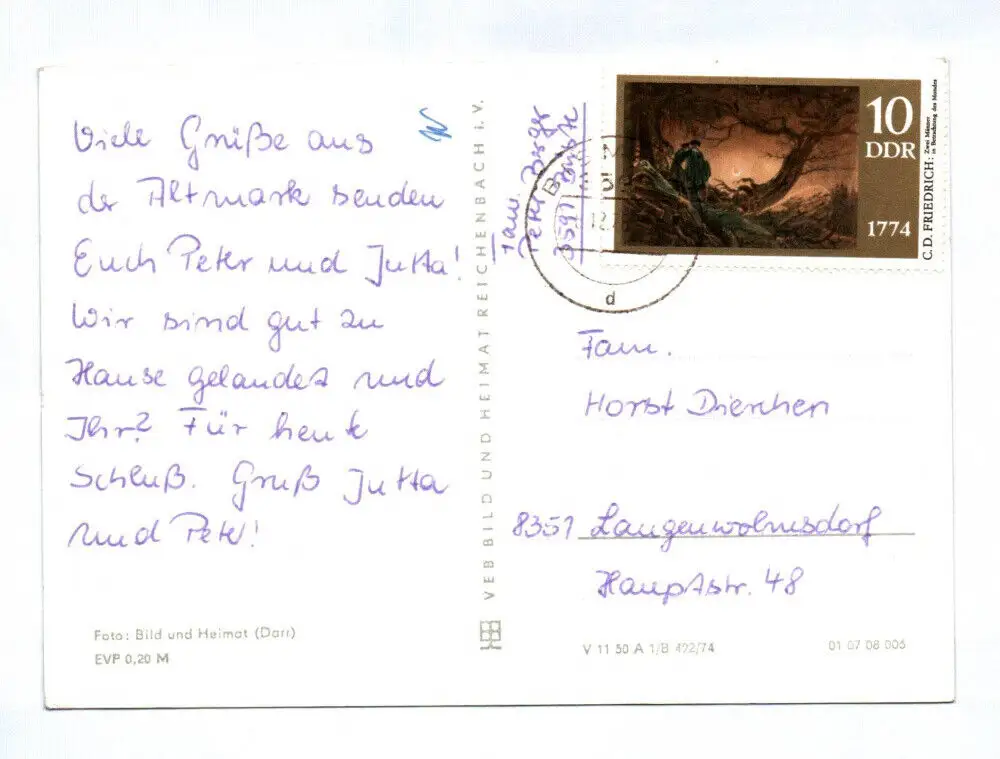 Viele Grüße aus
der Altmark senden
Euch Peter und Jutta!
Wir sind gut zu
Hause gelandet und
Ihr? Für heute
Schluß. Gruß Jutta
und Peter!
Foto: Bild und Heimat (Darr)
EVP 0,20 M
VEB BILD UND HEIMAT REICHENBACH I. V.
Fam.
Peter
3591
10
DDR
1774
C. D. FRIEDRICH: Zwei Männer
in Betrachtung des Mondes
d
Fam.
Horst Dierchen
8351 Langenwolmsdorf
Hauptstr. 48
V 11 50 A 1/B 492/74
01 07 08 005